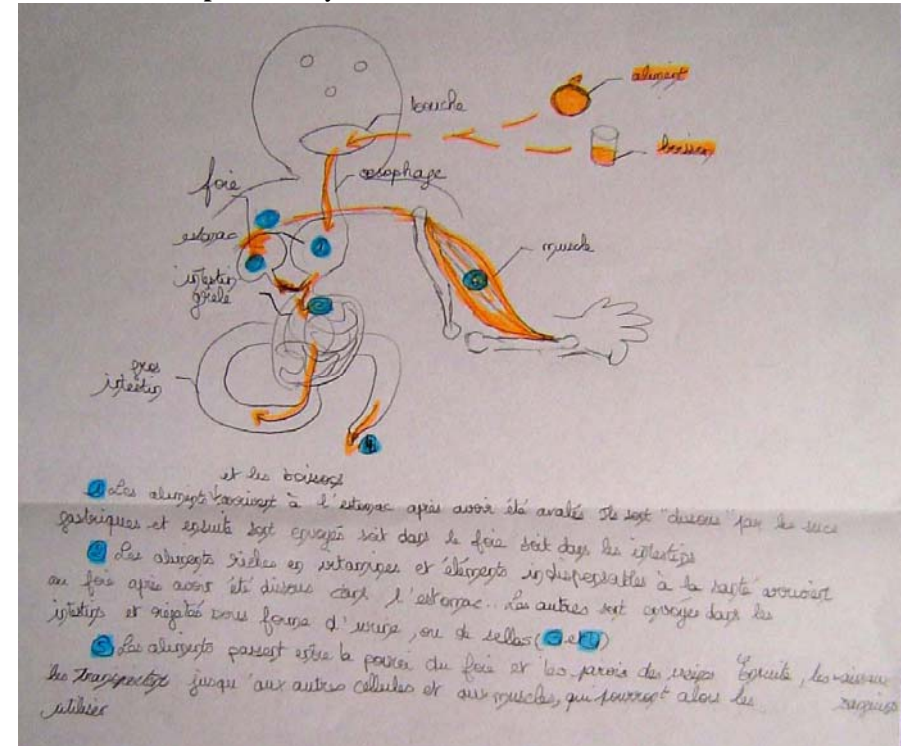 aliment
bouche
boisson
œsophage
foie
estomac
muscle
intestin
grele
gros
intestin
et les boissons
1 Les aliments arrivent à l'estomac après avoir été avalés Ils sont "dissous" par les sucs
gastriques et ensuite sont envoyés soit dans le foie soit dans les intestins
2 Les aliments riches en vitamines et élements indispensables à la santé arrivent
au foie après avoir été dissous dans l'estomac.. Les autres sont envoyés dans les
intestins et rejetés sous forme d'urine, ou de selles (3 et 4)
5 Les aliments passent entre la paroi du foie et les parois des Ensuite, les
les transportent jusqu'aux autres cellules et aux muscles, qui pourront alors les
utiliser